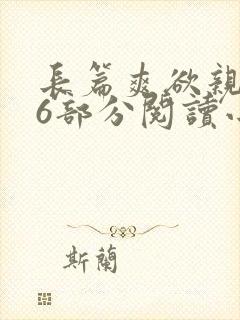 長篇爽欲親
6部分閱讀
斯蘭